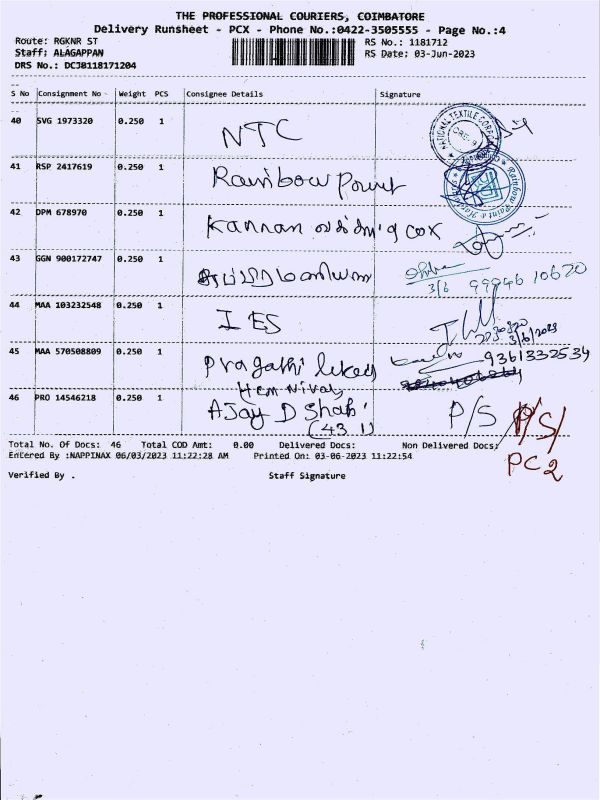 THE PROFESSIONAL COURIERS, COIMBATORE
Delivery Runsheet - PCX - Phone No.:0422-3505555 - Page No.:4
Route: RGKNR ST RS No.: 1181712
Staff: ALAGAPPAN RS Date: 03-Jun-2023
DRS No.: DCJB118171204
S No Consignment No Weight PCS Consignee Details Signature
40 SVG 1973320 0.250 1 NTC
41 RSP 2417619 0.250 1 Rainbow Point
42 DPM 678970 0.250 1 Kannan
43 GGN 900172747 0.250 1
3/6 99946 10620
44 MAA 103232548 0.250 1 IES
3/6/2023
45 MAA 570508809 0.250 1 Pragathi 9361332534
46 PRO 14546218 0.250 1 AJay D Shah P/S P/S/
(43 1)
Total No. Of Docs: 46 Total COD Amt: 0.00 Delivered Docs: Non Delivered Docs:
Entered By :NAPPINAX 06/03/2023 11:22:28 AM Printed On: 03-06-2023 11:22:54
PC2
Verified By . Staff Signature